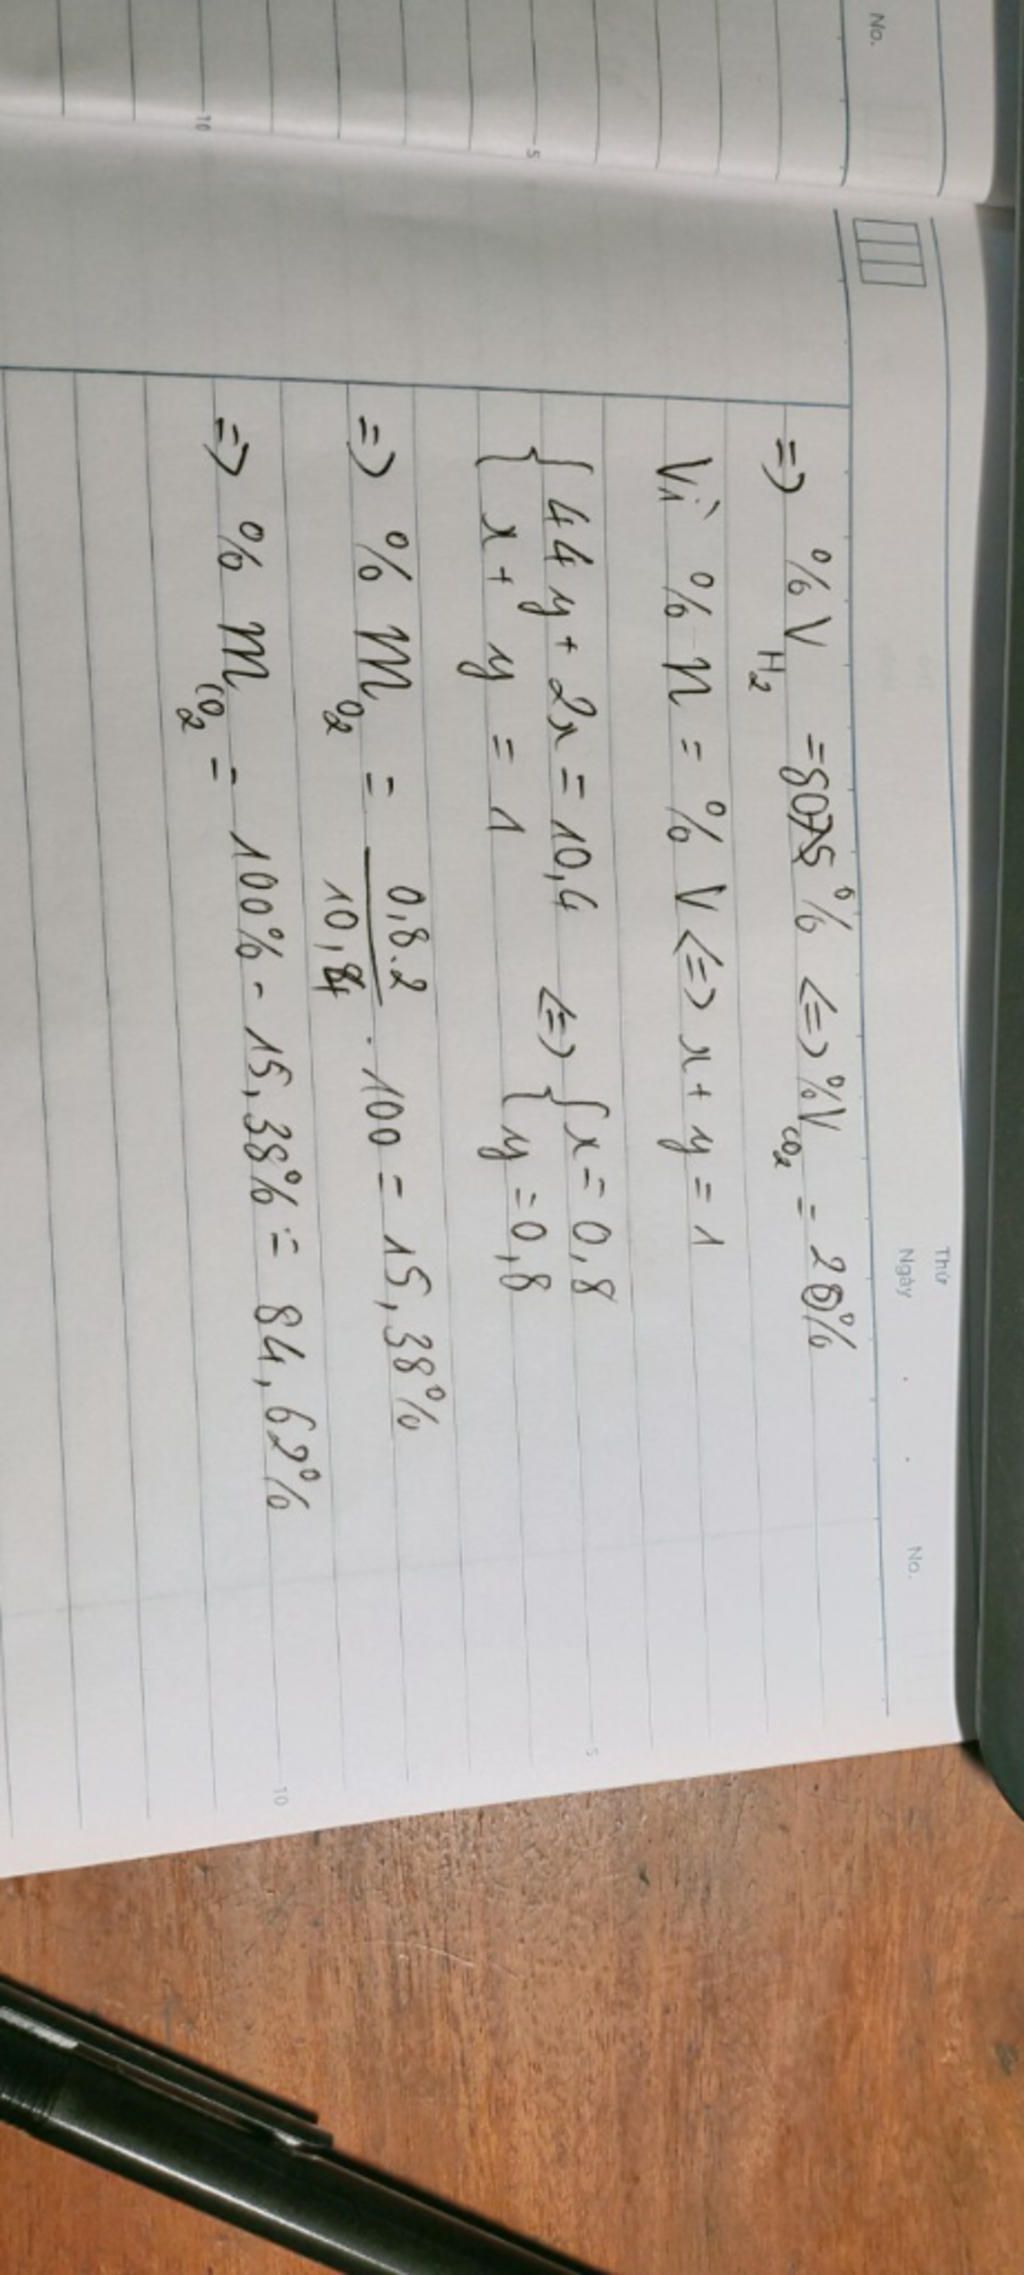 No.
5
10
Thứ
Ngày . . No.
=> % V H2 = 80% <=> % V CO2 = 20%
Vì % n = % V <=> x + y = 1
{ 44y + 2x = 10,4 <=> { x = 0,8
{ x + y = 1 { y = 0,8
=> % m O2 = 0,8.2 / 10,4 . 100 = 15,38%
=> % m CO2 = 100% - 15,38% = 84,62%
5
10